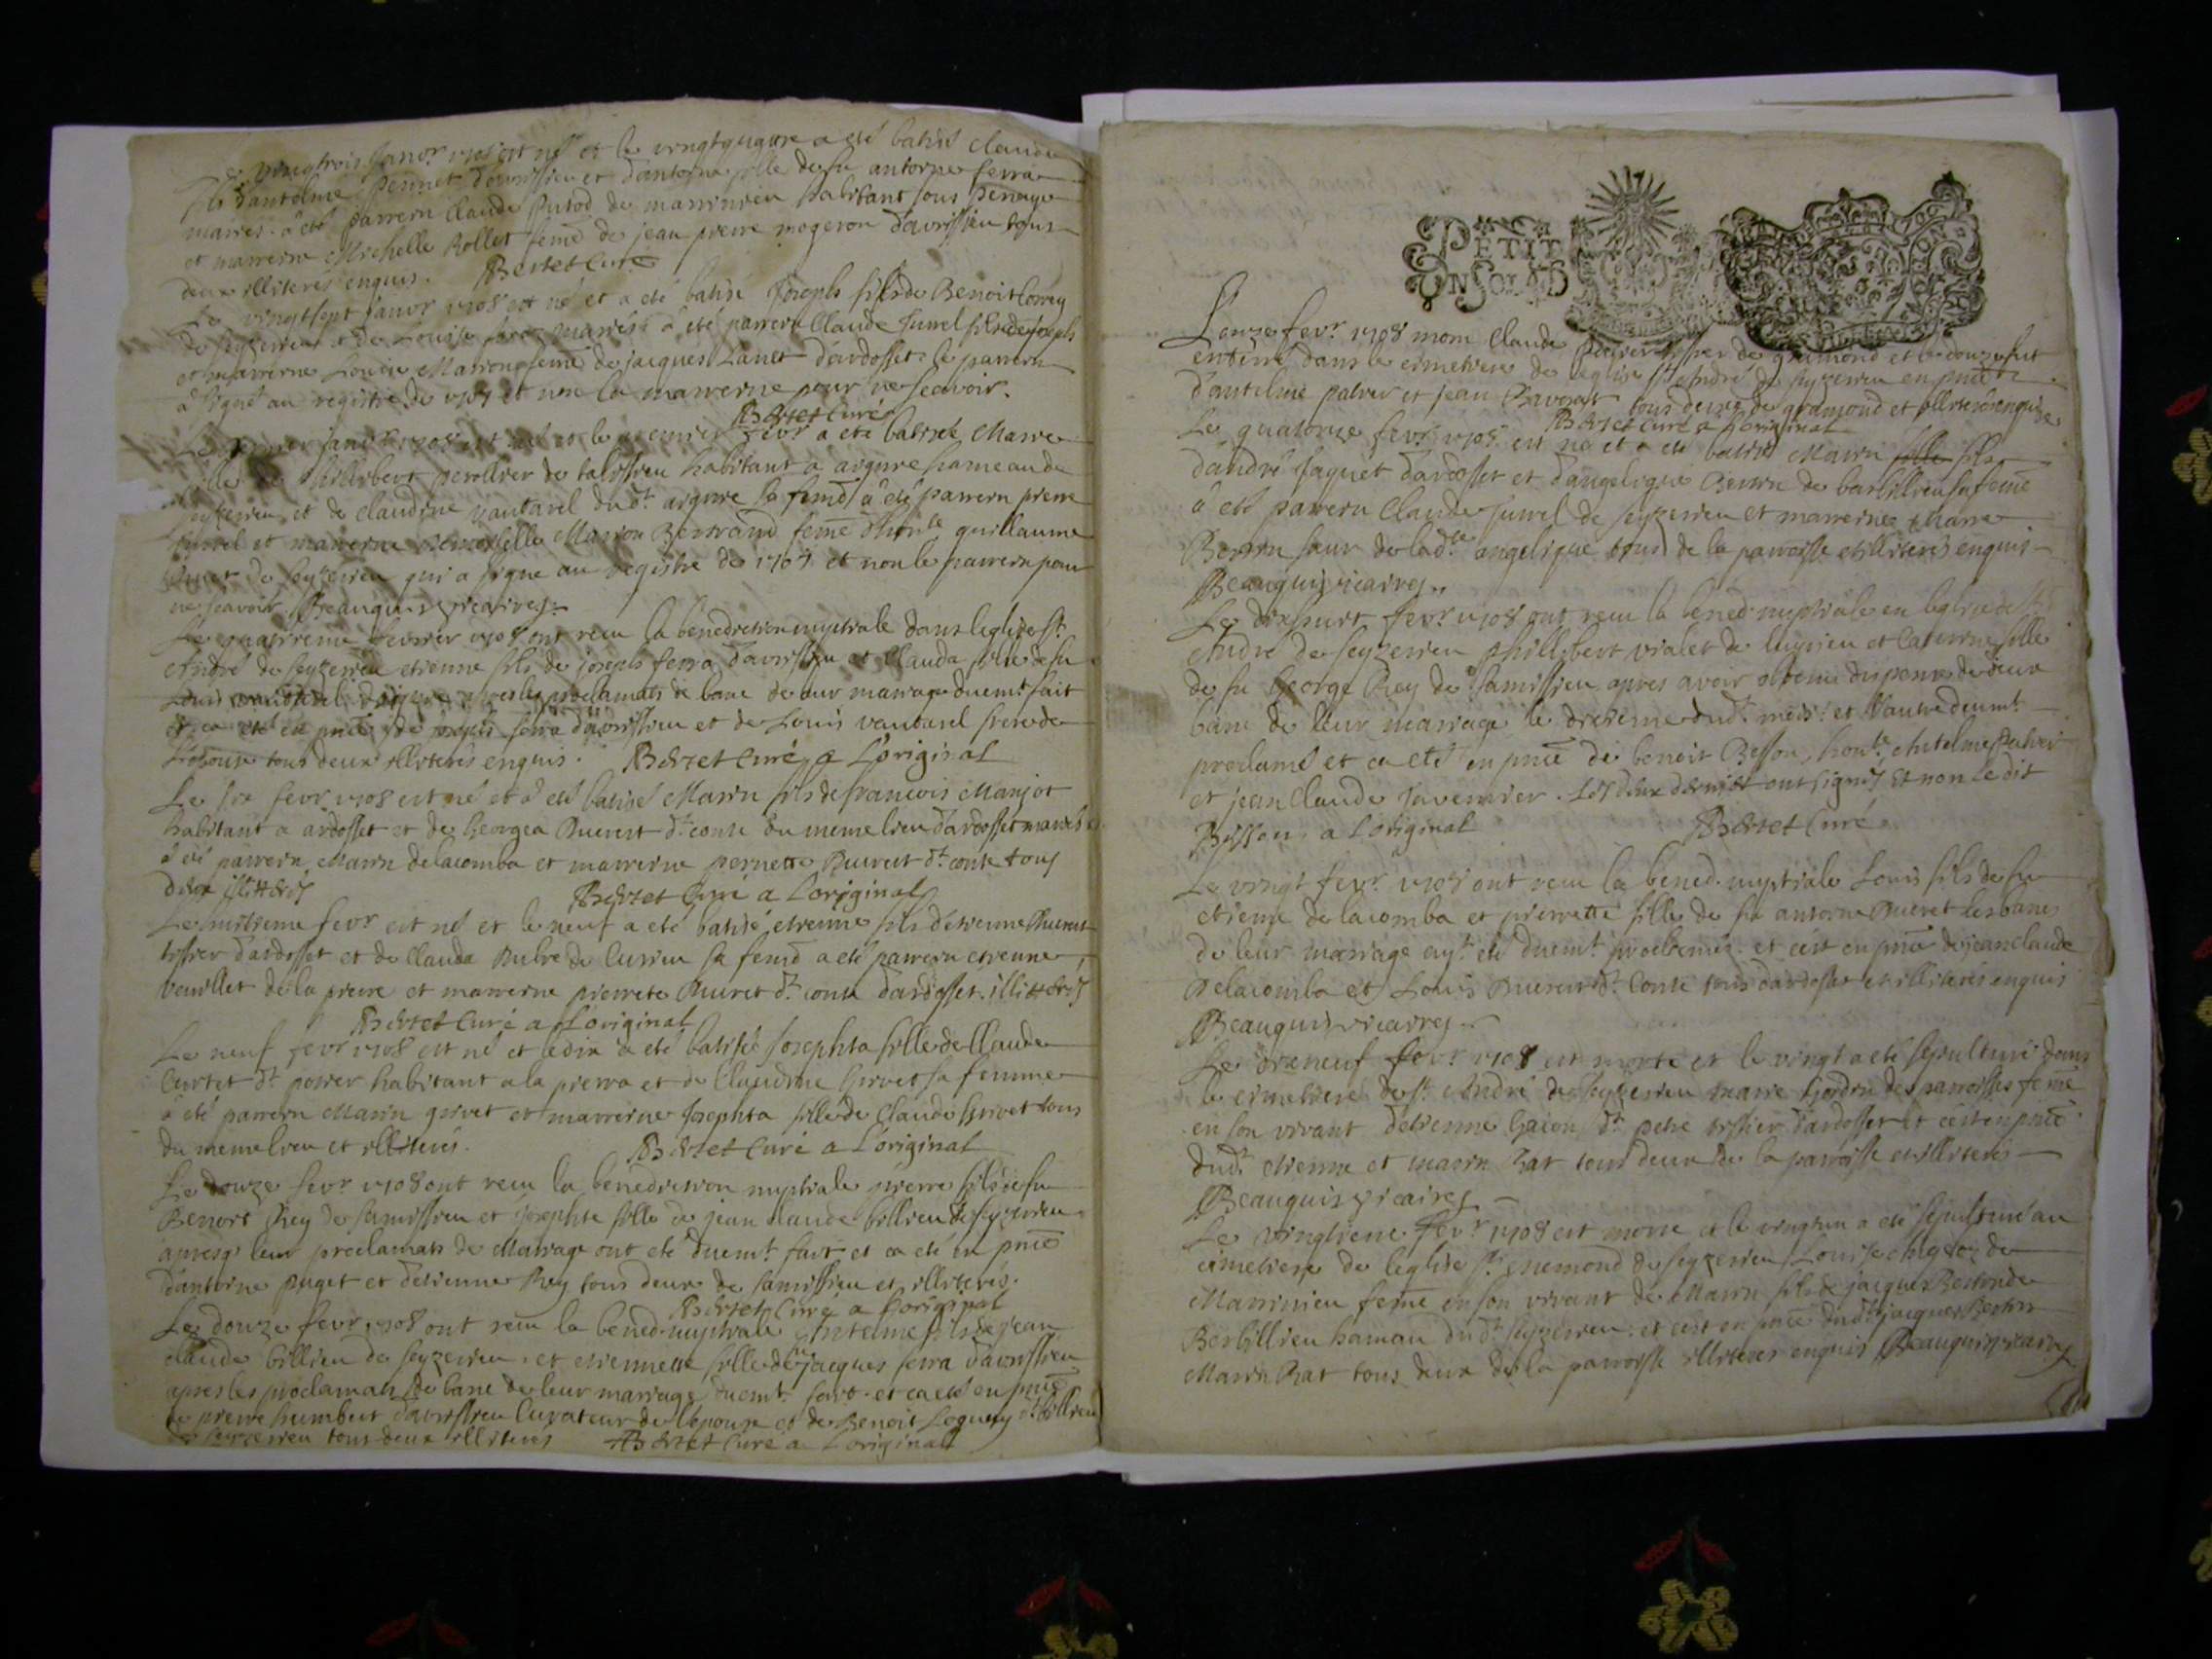 Le vingtrois janvr 1708 est né et le vingtquatre a eté batisé claude
fils d'antelme pennet d'avrissieu et d'antoina fille de fu antoine ferra
mariés. a eté parrein Claude Putod de marinieu habitant sous
et marreine Michelle Rollet feme de jean pierre mogeron d'avrissieu tous
deux illiteres enquis. Bertet Curé
Le vingtsept janvr 1708 est né et a eté batisé Joseph fils de Benoit Correy
de seyzerieu et de Louise mariés a eté parrein Claude Juvel fils de joseph
et marreine Louise Marion feme de jacques Lanet d'ardosset le parrein
a signé au registre de 1707 et non la marreine pour ne scavoir.
Bertet Curé
Le janvr 1708 est né et le premier fevr a eté batisée Marie
fille de Philibert perollier de talissieu habitant a argure hameau de
seyzerieu et de claudine vautarel dudt argure sa feme a eté parrein pierre
Juvel et marreine demoiselle Marion Bertrand feme d'honle guillaume
de seyzerieu qui a signé au registre de 1707 et non le parrein pour
ne scavoir. Beauquis vicaire
Le quatrieme fevrier 1708 ont receu la benediction nuptiale dans leglise St
André de seyzerieu etienne fils de joseph ferra d'avrissieu et Clauda fille de fu
Louis vautarel d'argure apres les proclamats de banc de leur mariage duemt fait
et ca eté en pnce de joseph ferra d'avrissieu et de Louis vautarel frere de
l'epouse tous deux illiteres enquis. Bertet Curé a L'original
Le fevr 1708 est né et a eté batisé Marin fils de francois Manjot
habitant a ardosset et de Georgea Bueret dt conte du meme lieu d'ardosset mariés
a eté parrein Marin delacomba et marreine pernette Bueret dt conte tous
deux illitterés Bertet Curé a L'original
Le huitieme fevr est né et le neuf a eté batisé etienne fils d'etienne Bueret
tissier d'ardosset et de Clauda de Curieu sa feme a eté parrein etienne
beurllet de la pierre et marreine pierrete Bueret dt conte d'ardosset. illitterés
Bertet Curé a L'original
Le neuf fevr 1708 est né et le dix a eté batisée Josephta fille de Claude
Curtet dt potier habitant a la pierra et de Claudine Girvet sa femme
a eté parrein Marin girvet et marreine Josephta fille de Claude Girvet tous
du meme lieu et illiterés. Bertet Curé a L'original
Le douze fevr 1708 ont receu la benediction nuptiale pierre fils de fu
Benoit Rey de samissieu et Josephte fille de jean claude billieu de seyzerieu
apresqe leur proclamats de Mariage ont eté duemt fait et ca eté en pnce
d'antoine puget et d'etienne Rey tous deux de samissieu et illiterés.
Bertet Curé a L'original
Le douze fevr 1708 ont receu la bened. nuptiale Antelme fils de jean
claude billieu de seyzerieu. et etiennette fille de fu jacques ferra d'avrissieu
apres les proclamats de banc de leur mariage duemt fait. et ca eté en pnce
de pierre humbert d'avrissieu Curateur de l'epouse et de Benoit Loguey dt billieu
de seyzerieu tous deux illiterés Bertet Curé a L'original
PETIT
UN SOL 4 D
L'onze fevr 1708 mort Claude tissier de gramond et le douze fut
enterré dans le cimetiere de leglise St André de seyzerieu en pnce
d'antelme palver et jean Ravorat tous deux de gramond et illiterés enquis
Bertet Curé a L'original
Le quatorze fevr 1708 est né et a eté batisé Marin fille fils
d'andré Jaquet d'ardosset et d'angelique Berrin de barbillieu sa feme
a eté parrein Claude Juvel de seyzerieu et marreine Marie
Berrin seur de ladte angelique tous de la parroisse et illiterés enquis
Beauquis vicaire
Le dixhuit fevr 1708 ont receu la bened. nuptiale en leglise de St
André de seyzerieu philibert vialet de luyrieu et Caterine fille
de fu George Rey de samissieu apres avoir obtenu dispense de deux
banc de leur mariage le dixieme dudt mois. et l'autre duemt
proclamé et ca eté en pnce de benoit Besson, honte Antelme Palver
et jean Claude Juvenier. Les deux derniers ont signés Et non Ledit
Besson, a L'original Bertet Curé
Le vingt fevr 1708 ont receu la bened. nuptiale Louis fils de fu
etienne delacomba et pierrette fille de fu antoine Bueret les bancs
de leur mariage ayt eté duemt proclamés. et cest en pnce de jean claude
Delacomba et Louis Bueret dt Conte tous d'ardosset et illiterés enquis
Beauquis vicaire
Le dixneuf fevr 1708 est morte et le vingt a eté sepulturé dans
le cimetiere de St André de seyzerieu marie des parroisses feme
en son vivant d'etienne Gaion dt petie tissier d'ardosset et cest en pnce
dudt etienne et marin Rat tous deux de la parroisse et illiterés
Beauquis vicaire
Le vingtieme fevr 1708 est morte et le vingtun a eté sepulturé au
cimetiere de leglise St enemond de seyzerieu Louise de
Marinieu feme en son vivant de Marin fils de jacques Berrin de
Berbillieu hameau dudt seyzerieu. et cest en pnce dudt jacques Berrin
Marin Rat tous deux de la parroisse illiteres enquis Beauquis vicaire